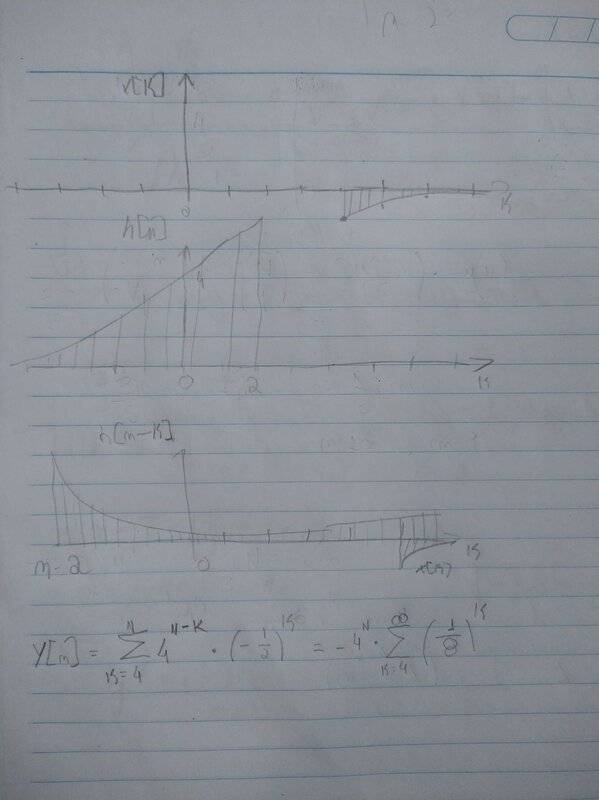 x[K]
0
K
h[n]
4
0 2 K
h[n-K]
n-2 0 x[n] K
Y[n] = \sum_{K=4}^{n} 4^{n-K} \cdot (-\frac{1}{2})^{K} = -4^{n} \cdot \sum_{K=4}^{\infty} (\frac{1}{8})^{K}